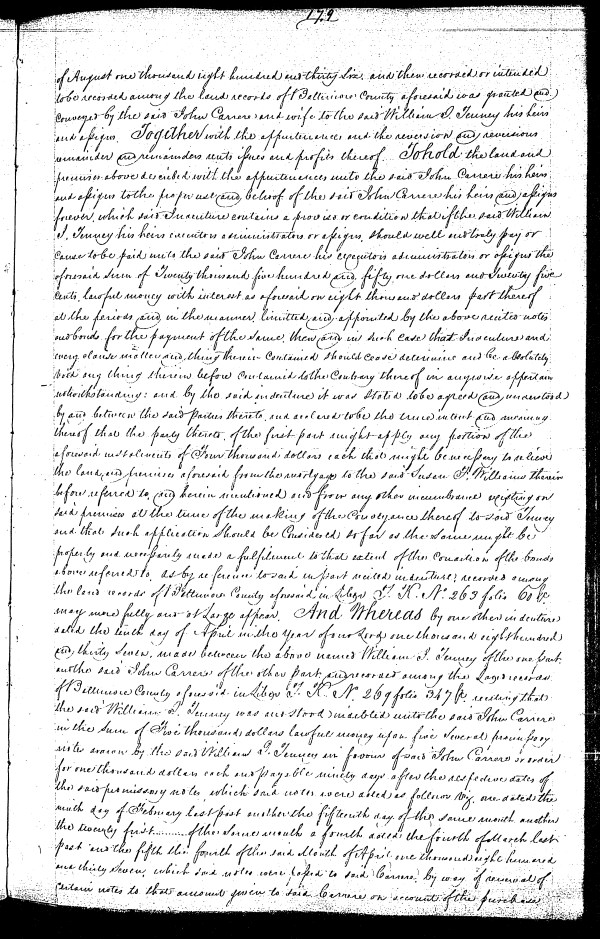 179
of August one thousand eight hundred and thirty Six, and then recorded or intended
to be recorded among the land records of Baltimore County aforesaid was granted and
conveyed by the said John Carrere and wife to the said William I. Tenney his heirs
and assigns Together with the appurtenances and the reversion and reversions
remainder and remainders rents issues and profits thereof .. To hold the land and
premises above described with the appurtenances unto the said John Carrere his heirs
and assigns to the proper use and behoof of the said John Carrere his heirs and assigns
forever, which said Indenture contains a proviso or condition that if the said William
I. Tenney his heirs executors administrators or assigns, should well and truly pay or
cause to be paid unto the said John Carrere his executors administrators or assigns the
aforesaid Sum of Twenty thousand five hundred and fifty one dollars and Twenty five
cents, lawful money with interest as aforesaid on eight thousand dollars part thereof
at the periods and in the manner, limited and appointed by the above recited notes
and bonds for the payment of the same, then and in such case that Indenture and
every clause matter and thing therein Contained should cease determine and be absolutely
void any thing therein before contained to the Contrary thereof in anywise appertain
notwithstanding: and by the said indenture it was stated to be agreed and understood
by and between the said parties thereto, and declared to be the true intent and meaning
thereof that the party thereto, of the first part might apply any portion of the
aforesaid instalments of Four thousand dollars each that might be necessary to relieve
the land and premises aforesaid from the mortgage to the said Susan P. Williams therein
before referred to, and herein mentioned and from any other incumbrance existing on
said premises at the time of the making of the Conveyance thereof to said Tenney
and that such application Should be Considered so far as the same might be
properly and necessarily made a fulfilment to that extent of the Condition of the bonds
above referred to, as by reference to said in part recited indenture, recorded among
the land records of Baltimore County aforesaid in Liber T. K. No. 263 folio 60 &c
may more fully and at Large appear. And Whereas by one other indenture
dated the tenth day of April in the year of our Lord one thousand eight hundred
and thirty Seven, made between the above named William I. Tenney of the one part
and the said John Carrere of the other part, and recorded among the Land records
of Baltimore County aforesaid in Liber T. K. No. 269 folio 347 &c reciting that
the said William I. Tenney was and stood indebted unto the said John Carrere
in the Sum of Five thousand dollars lawful money upon five Several promissory
notes drawn by the said William I. Tenney in favour of said John Carrere or order
for one thousand dollars each and payable ninety days after the respective dates of
the said promissory notes, which said notes were dated as follows Viz. one dated the
ninth day of February last past another the fifteenth day of the same month another
the twenty first ........ of the same month a fourth dated the fourth of March last
past and the fifth the fourth of the said Month of April one thousand eight hundred
and thirty Seven, which said notes were passed to said Carrere, by way of renewal of
certain notes to that amount given to said Carrere on account of the purchase